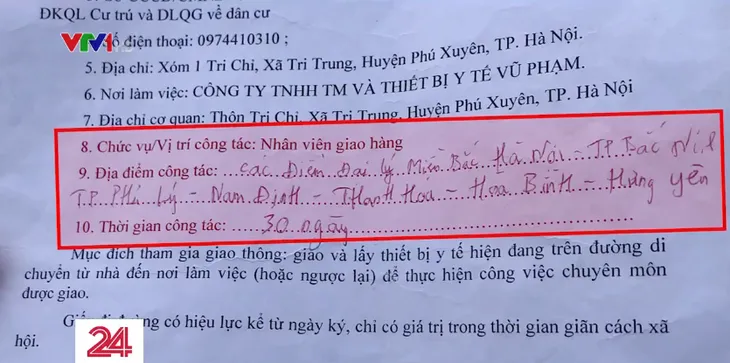 ĐKQL Cư trú và DLQG về dân cư
VTV1 Số điện thoại: 0974410310 ;
5. Địa chỉ: Xóm 1 Tri Chỉ, Xã Tri Trung, Huyện Phú Xuyên, TP. Hà Nội.
6. Nơi làm việc: CÔNG TY TNHH TM VÀ THIẾT BỊ Y TẾ VŨ PHẠM.
7. Địa chỉ cơ quan: Thôn Tri Chỉ, Xã Tri Trung, Huyện Phú Xuyên, TP. Hà Nội
8. Chức vụ/Vị trí công tác: Nhân viên giao hàng
9. Địa điểm công tác: ...Các Điểm Đại Lý Miền Bắc Hà Nội - TP Bắc Ninh
TP Phủ Lý - Nam Định - Thanh Hoa - Hoa Bình - Hưng Yên
10. Thời gian công tác: ......30 ngày......
Mục đích tham gia giao thông: giao và lấy thiết bị y tế hiện đang trên đường di
chuyển từ nhà đến nơi làm việc (hoặc ngược lại) để thực hiện công việc chuyên môn
được giao.
có hiệu lực kể từ ngày ký, chỉ có giá trị trong thời gian giãn cách xã
hội.
24